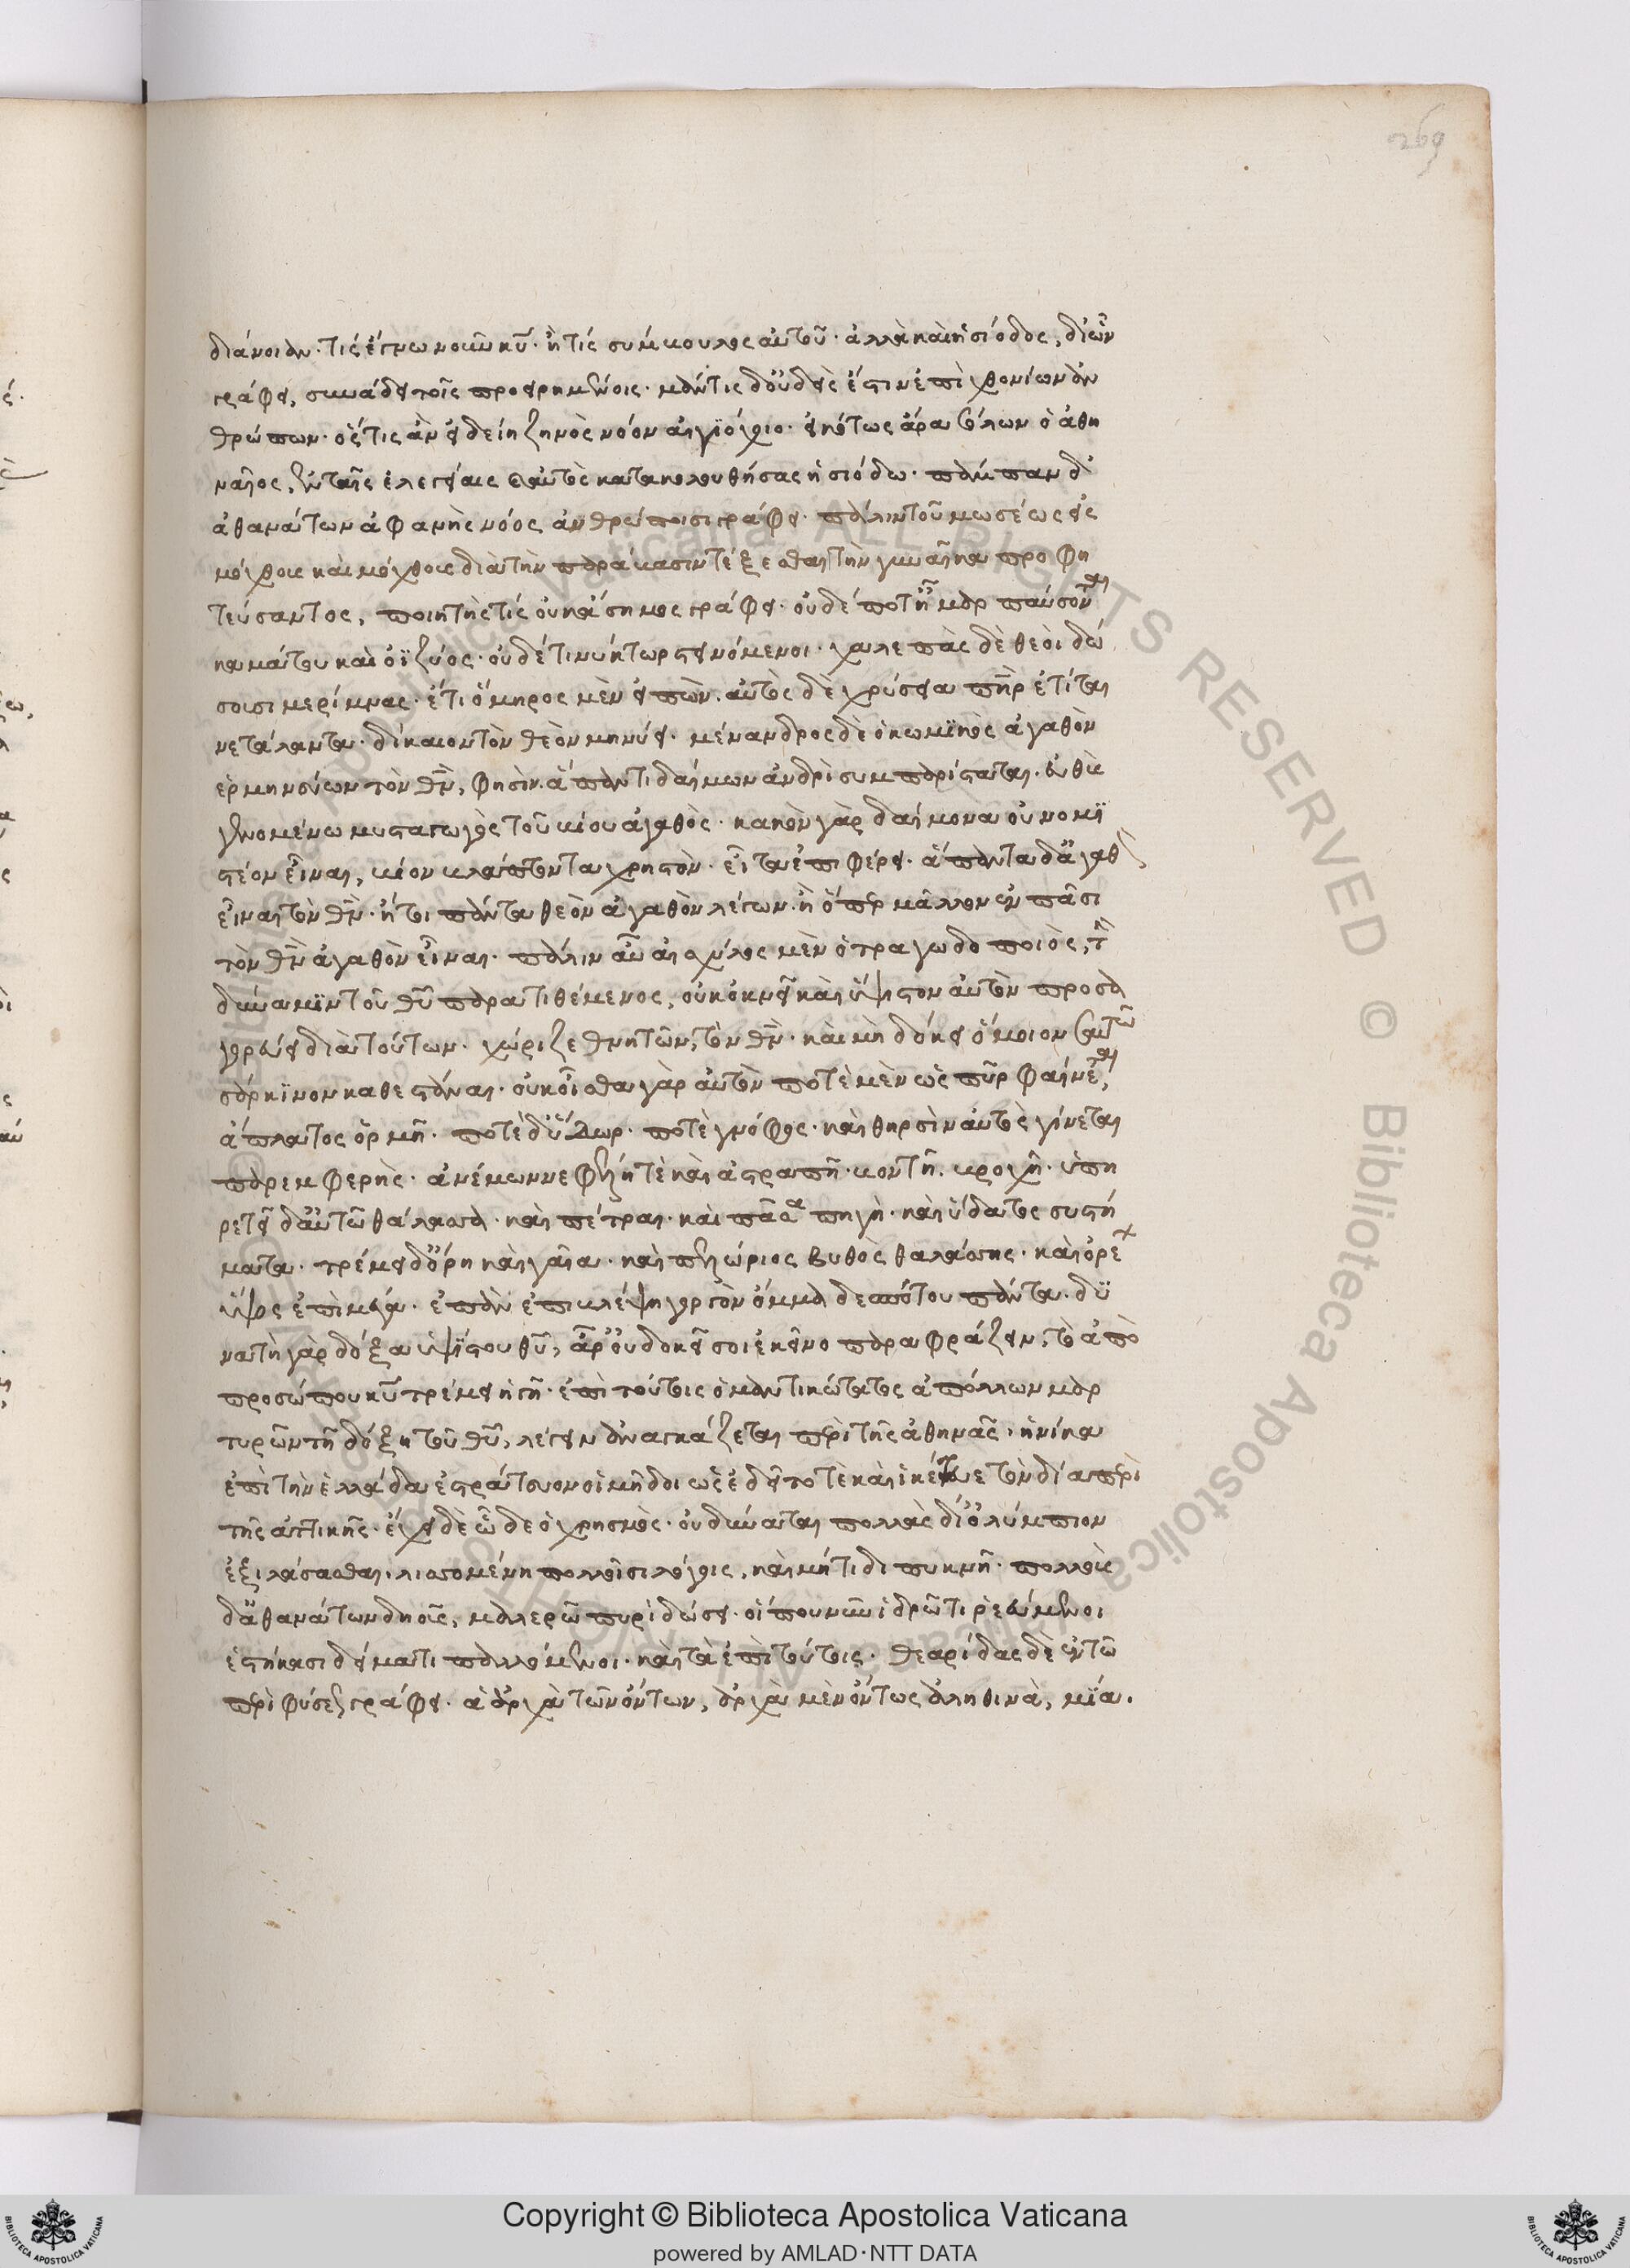 269
διάνοιαν· τίς ἔγνω νοῦν κυ̅· ἢ τίς σύμβουλος αὐτοῦ· ἀλλὰ καὶ ἡσίοδος, δι' ὧν
γράφει, συνάδει τοῖς προειρημένοις· μάντις δ' οὐδεὶς ἔστιν ἐπιχθονίων ἀν
θρώπων· ὅστις ἂν εἰδείη ζηνὸς νόον αἰγιόχοιο· εἰκότως ἄρα σόλων ὁ ἀθη
ναῖος, ἐν ταῖς ἐλεγείαις καὶ αὐτὸς κατακολουθήσας ἡσιόδω· πάμπαν δ'
ἀθανάτων ἀφανὴς νόος ἀνθρώποισι γράφει· πάλιν τοῦ μωσέως εἰς
μόχθοις καὶ μόχθοις διὰ τὴν παράβασιν τέξεσθαι τὴν γυναῖκα προφη
τεύσαντος, ποιητής τις οὐκ ἄσημος γράφει· οὐδέποτ' ἦμαρ παύσονται
καμάτου καὶ ὀϊζύος· οὐδέ τι νύκτωρ στεινόμενοι· χαλεπὰς δὲ θεοὶ δώ
σοισι μερίμνας· ἔτι ὅμηρος μὲν εἰπὼν· αὐτὸς δὲ χρύσεια πηρ ἐτίται
νε τάλαντα· δίκαιον τὸν θεὸν μηνύει· μένανδρος δὲ ὁ κωμϊκὸς ἀγαθὸν
ἑρμηνεύων τὸν θν̅, φησὶν· ἅπαντι δαίμων ἀνδρὶ συμπαρίσταται· εὐθὺς
γενομένω μυσταγωγὸς τοῦ βίου ἀγαθός· κακὸν γὰρ δαίμονα οὐ νομϊ
στέον εἶναι, βίον βλάπτοντα χρηστόν· εἶτα ἐπιφέρει· ἅπαντα δ' ἀγαθ
εἶναι τὸν θν̅· ἤτοι πάντα θεὸν ἀγαθὸν λέγων· ἢ ὅπερ μᾶλλον ἐν πᾶσι
τὸν θν̅ ἀγαθὸν εἶναι· πάλιν αὖ αἰσχύλος μὲν ὁ τραγωδοποιὸς, τὴν
δύναμϊν τοῦ θυ̅ παρατιθέμενος, οὐκ ὀκνεῖ καὶ ὕψιστον αὐτὸν προσα
γορεύει διὰ τούτων· χώριζε θνητῶν, τὸν θν̅· καὶ μὴ δόκει ὅμοιον ἑαυτῶ
σάρκϊνον καθεστάναι· οὐκ οἶσθα γὰρ αὐτὸν ποτὲ μὲν ὡς πῦρ φαίνεται,
ἄπλατος ὁρμῆ· ποτὲ δ' ὕδωρ· ποτὲ γνόφος· καὶ θηρσὶν αὐτὸς γίνεται
παρεμφερής· ἀνέμω νεφέλη τὲ καὶ ἀστραπῆ· βροντῆ· βροχῆ· ὑπη
ρετεῖ δ' αὐτῶ θάλασσα· καὶ πέτραι· καὶ πᾶσα πηγὴ· καὶ ὕδατος συστή
ματα· τρέμει δ' ὄρη καὶ γαῖα· καὶ πελώριος βυθὸς θαλάσσης· καὶ ὀρε
ὕψος ἐπὶ μέγα· ἐπὰν ἐπιβλέψη γοργὸν ὄμμα δεσπότου πάντα· δϋ
νατὴ γὰρ δόξα ὑψίστου θυ̅, ἆρ' οὐ δοκεῖ σοι ἐκεῖνο παραφράζειν, τὸ ἀπὸ
προσώπου κυ̅ τρέμει ἡ γῆ· ἐπὶ τούτοις ὁ μαντικώτατος ἀπόλλων μαρ
τυρῶν τῆ δόξη τοῦ θυ̅, λέγειν ἀναγκάζεται περὶ τῆς ἀθηνᾶς, ἡνίκα
ἐπὶ τὴν ἑλλάδα ἐστράτευον οἱ μῆδοι ὡς ἐδεῖτο τὲ καὶ ἱκέτευε τὸν δία περὶ
τῆς ἀττικῆς· ἔχει δὲ ὧδε ὁ χρησμὸς· οὐ δύναται παλλὰς δί' ὀλύμπιον
ἐξιλάσασθαι· λισσομένη πολλοῖσι λόγοις, καὶ μήτιδι πυκνῆ· πολλοὺς
δ' ἀθανάτων δηοῖς, μαλερῶ πυρὶ δώσει· οἵ που νῦν ἱδρῶτι ῥεούμενοι
ἑστήκασι δείματι παλλόμενοι· καὶ τὰ ἐπὶ τούτοις· θεαρίδας δὲ ἐν τῶ
περὶ φύσεως γράφει· ἁ ἀρχὰ τῶν ὄντων, ἀρχὰ μὲν ὄντως ἀληθινὰ, μία.
Copyright © Biblioteca Apostolica Vaticana
powered by AMLAD·NTT DATA